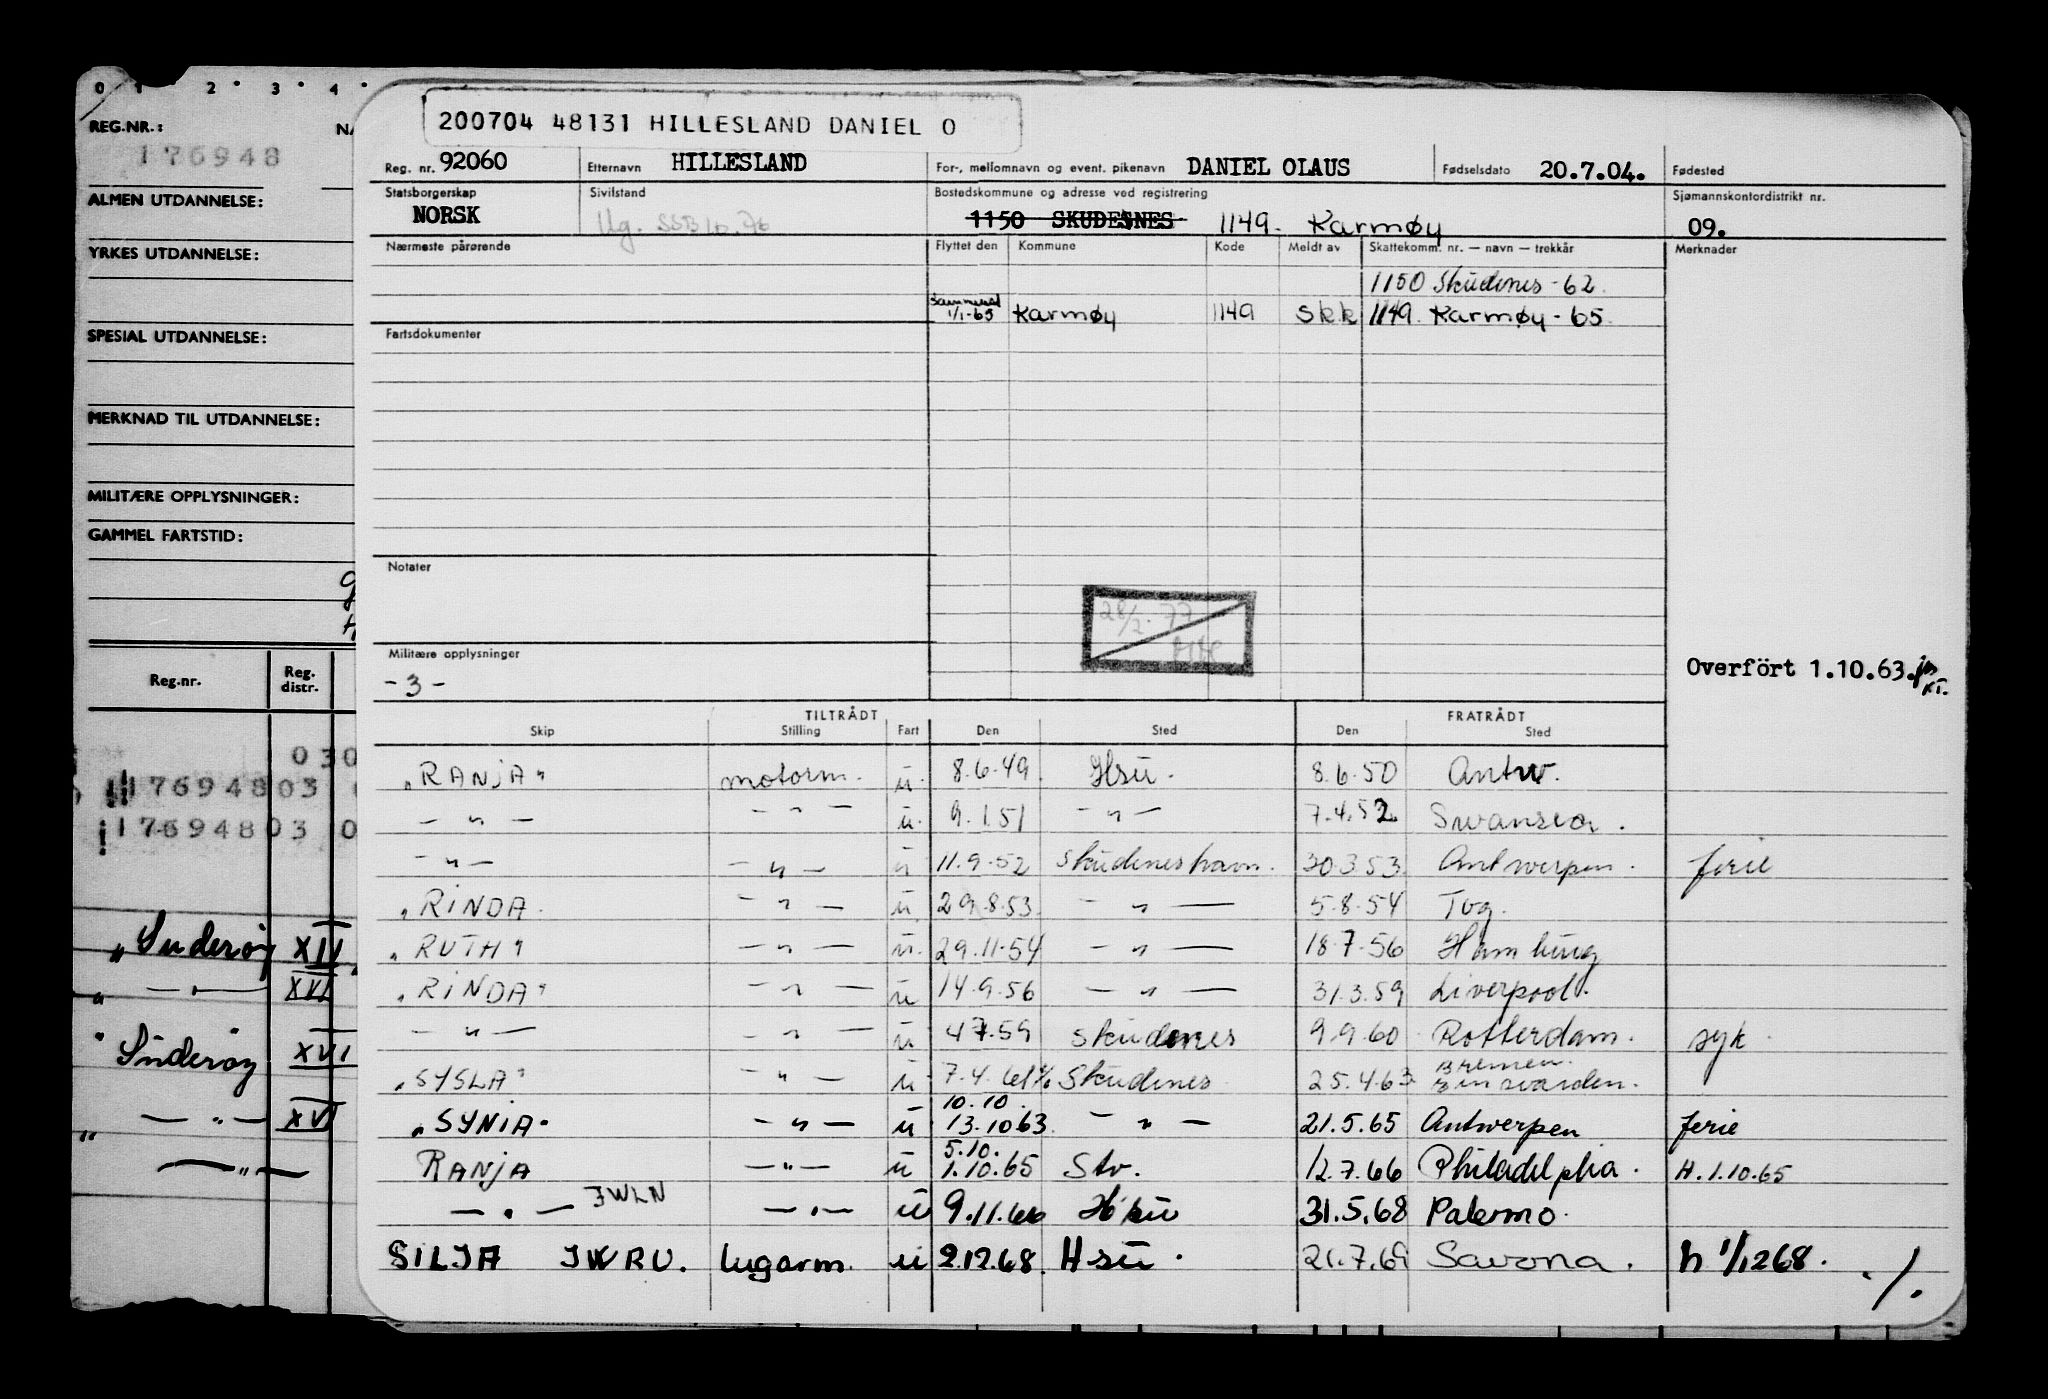 0 1 2 3 4
REG.NR.:
176948
ALMEN UTDANNELSE:
YRKES UTDANNELSE:
SPESIAL UTDANNELSE:
MERKNAD TIL UTDANNELSE:
MILITÆRE OPPLYSNINGER:
GAMMEL FARTSTID:
Reg.nr. Reg. distr.
030
17694803 0
17694803 0
„Suderøy XIV
„ — " — XVI
"Suderøy" XVI
„ — " — XVI
— " —
200704 48131 HILLESLAND DANIEL O
Reg. nr. 92060 Etternavn HILLESLAND For-, mellomnavn og event. pikenavn DANIEL OLAUS Fødselsdato 20.7.04. Fødested
Statsborgerskap Sivilstand Bostedskommune og adresse ved registrering Sjømannskontordistrikt nr.
NORSK Ug. SSB 10.76 1150 SKUDESNES 1149. Karmøy 09.
Nærmeste pårørende Flyttet den Kommune Kode Meldt av Skattekomm. nr. — navn — trekkår Merknader
1150 Skudenes - 62
1/1-65 Karmøy 1149 skk 1149. Karmøy - 65.
Fartsdokumenter
Notater
28/2. 77
Militære opplysninger
- 3 -
Overfört 1.10.63.
TILTRÅDT FRATRÅDT
Skip Stilling Fart Den Sted Den Sted
„RANJA" motorm. u. 8.6.49 Hsu. 8.6.50 Antw.
— " — — " — u. 9.1.51 — " — 7.4.52. Swansea.
— " — — " — u 11.9.52 Skudeneshavn. 30.3.53. Antwerpen. ferie
„RINDA. — " — u. 29.8.53. — " — 5.8.54 Tvg.
„RUTH" — " — u. 29.11.54 — " — 18.7.56 Hamburg
„RINDA" — " — u 14.9.56 — " — 31.3.59 Liverpool.
— " — — " — u 4.7.59 Skudenes 9.9.60 Rotterdam. syk.
„SYSLA" — " — u 7.4.61 Skudenes. 25.4.63 Bremen.
10.10.
„SYNIA" — " — u 13.10.63. — " — 21.5.65 Antwerpen ferie
5.10.
RANJA — " — u 1.10.65 Stv. 12.7.66 Philadelphia. H. 1.10.65
— " — JWLN — " — u 9.11.66 31.5.68 Palermo.
SILJA JWRU. lugarm. u 2.12.68. Hsu. 21.7.69 Savona. h 1/1268. ./.